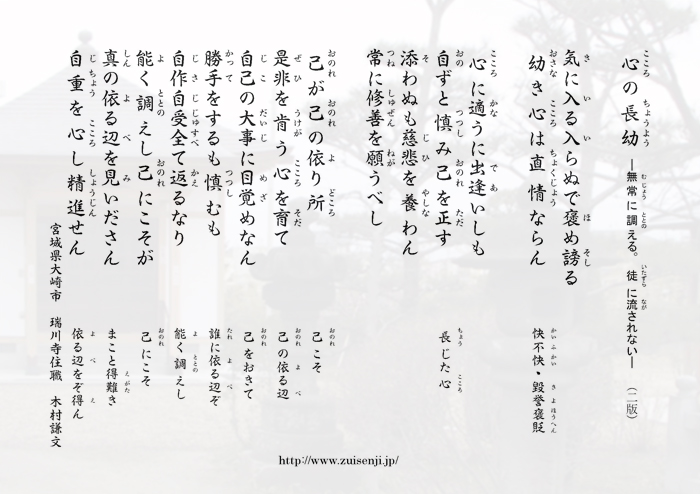 心の長幼 ―無常に調える。徒に流されない― （二版）
気に入る入らぬで褒め謗る
幼き心は直情ならん
快不快・毀誉褒貶
心に適うに出逢いしも
自ずと慎み己を正す
添わぬも慈悲を養わん
常に修善を願うべし
長じた心
己が己の依り所
是非を肯う心を育て
自己の大事に目覚めなん
勝手をするも慎むも
自作自受全て返るなり
能く調えし己にこそが
真の依る辺を見いださん
自重を心し精進せん
己こそ
己の依る辺
己をおきて
誰に依る辺ぞ
能く調えし
己にこそ
まこと得難き
依る辺をぞ得ん
宮城県大崎市 瑞川寺住職 木村謙文
http://www.zuisenji.jp/